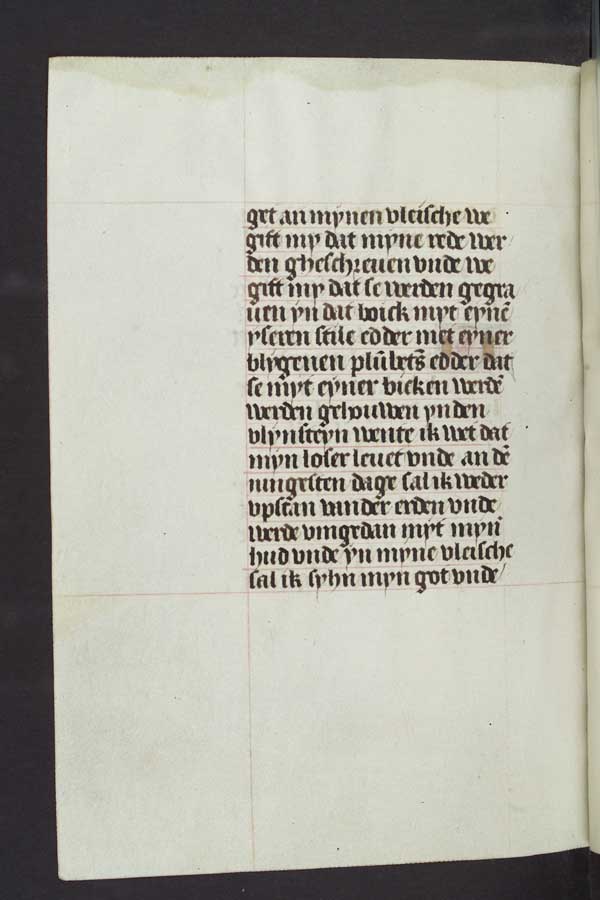 get an mynen vleische we
gift my dat myne rede wer
den gheschreuen vnde we
gift my dat se werden gegra
uen yn dat boick myt eynē
yseren stile edder met eyner
blygenen plūbets edder dat
se myt eyner bicken werdē
werden gehouwen yn den
vlynsteyn wente ik wet dat
myn loser leuet vnde an dē
iungesten dage sal ik weder
vpstan van der erden vnde
werde vmgedan myt myn̄
hud vnde yn myne vleische
sal ik syhn myn got vnde